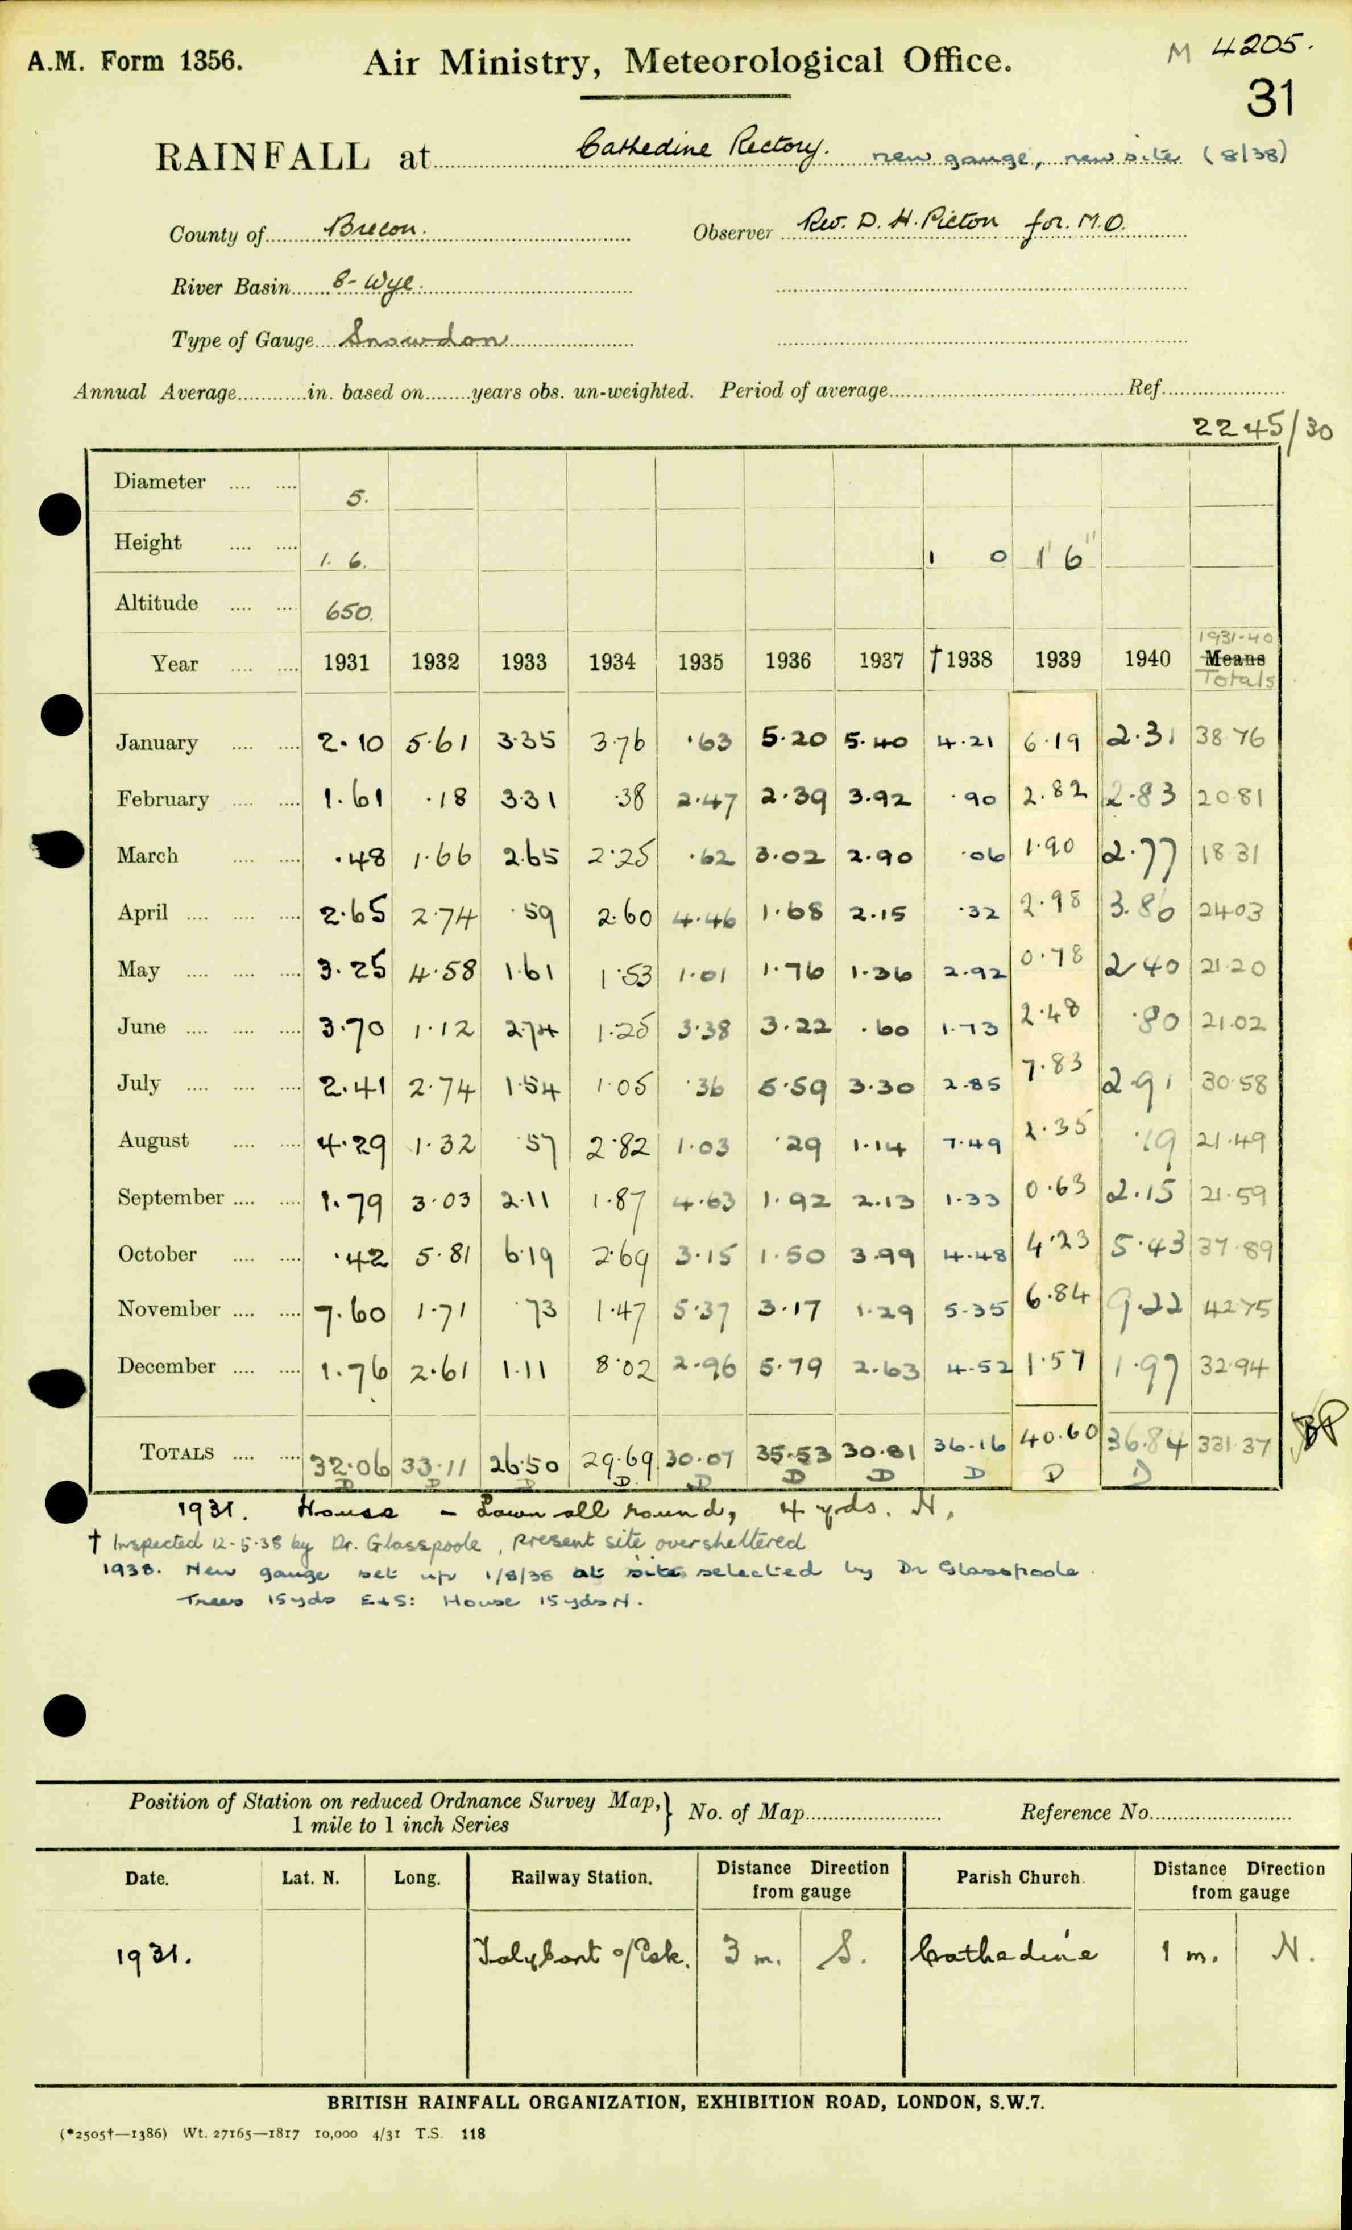 A.M. Form 1356.
Air Ministry, Meteorological Office.
M 4205.
31
RAINFALL at Cathedine Rectory. new gauge, new site (8/38)
County of Brecon. Observer Rev. D. H. Picton for M.O.
River Basin 8- Wye.
Type of Gauge Snowdon
Annual Average in. based on years obs. un-weighted. Period of average Ref.
2245/30
Diameter 5.
Height 1. 6. 1 0 1' 6"
Altitude 650.
1931-40
Year 1931 1932 1933 1934 1935 1936 1937 †1938 1939 1940 Means
Totals
January 2.10 5.61 3.35 3.76 .63 5.20 5.40 4.21 6.19 2.31 38.76
February 1.61 .18 3.31 .38 2.47 2.39 3.92 .90 2.82 2.83 20.81
March .48 1.66 2.65 2.25 .62 3.02 2.90 .06 1.90 2.77 18.31
April 2.65 2.74 .59 2.60 4.46 1.68 2.15 .32 2.98 3.86 24.03
May 3.25 4.58 1.61 1.53 1.01 1.76 1.36 2.92 0.78 2.40 21.20
June 3.70 1.12 2.74 1.25 3.38 3.22 .60 1.73 2.48 .80 21.02
July 2.41 2.74 1.54 1.05 .36 5.59 3.30 2.85 7.83 2.91 30.58
August 4.29 1.32 .57 2.82 1.03 .29 1.14 7.49 2.35 .19 21.49
September 1.79 3.03 2.11 1.87 4.63 1.92 2.13 1.33 0.63 2.15 21.59
October .42 5.81 6.19 2.69 3.15 1.50 3.99 4.48 4.23 5.43 37.89
November 7.60 1.71 .73 1.47 5.37 3.17 1.29 5.35 6.84 9.22 42.75
December 1.76 2.61 1.11 8.02 2.96 5.79 2.63 4.52 1.57 1.97 32.94
TOTALS 32.06 33.11 26.50 29.69 30.07 35.53 30.81 36.16 40.60 36.84 331.37
D D D D D D D D D D
1931. House - Lawn all round, 4 yds. N,
† Inspected 12-5-38 by Dr. Glasspoole, Present site oversheltered
1938. New gauge set up 1/8/38 at site selected by Dr Glasspoole.
Trees 15yds E+S: House 15yds N.
Position of Station on reduced Ordnance Survey Map, } No. of Map Reference No.
1 mile to 1 inch Series
Date. Lat. N. Long. Railway Station. Distance Direction from gauge Parish Church. Distance Direction from gauge
1931. Talybont o/Usk. 3 m. S. Cathedine 1 m. N.
BRITISH RAINFALL ORGANIZATION, EXHIBITION ROAD, LONDON, S.W.7.
(*2505†—1386) Wt. 27165—1817 10,000 4/31 T.S. 118